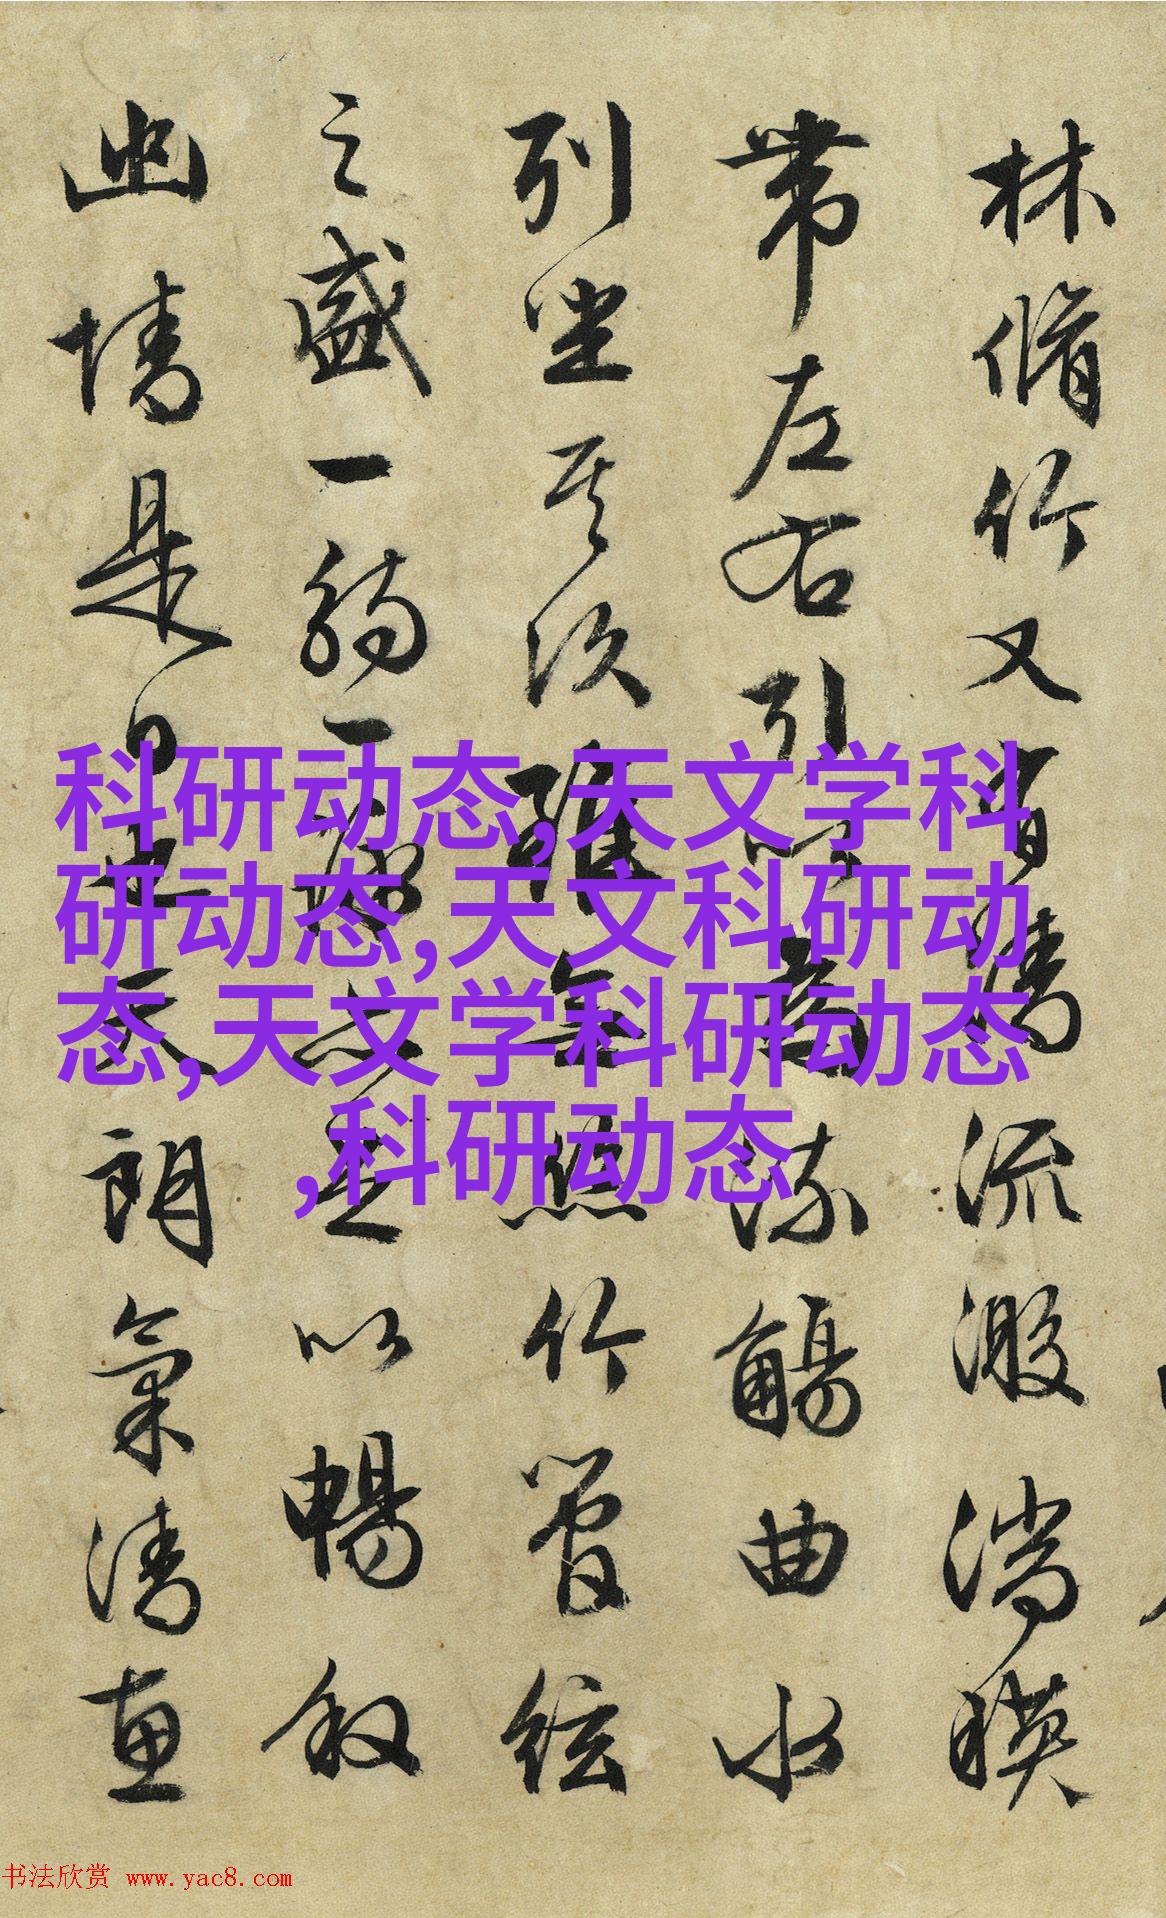 林脩竹又有清流激湍暎
帶左右引以為流觴曲水
列坐其次雖無絲竹管絃
之盛一觴一詠亦足以暢叙
幽情是日也天朗氣清惠
科研动态,天文学科
研动态,天文科研动
态,天文学科研动态
,科研动态
书法欣赏 www.yac8.com